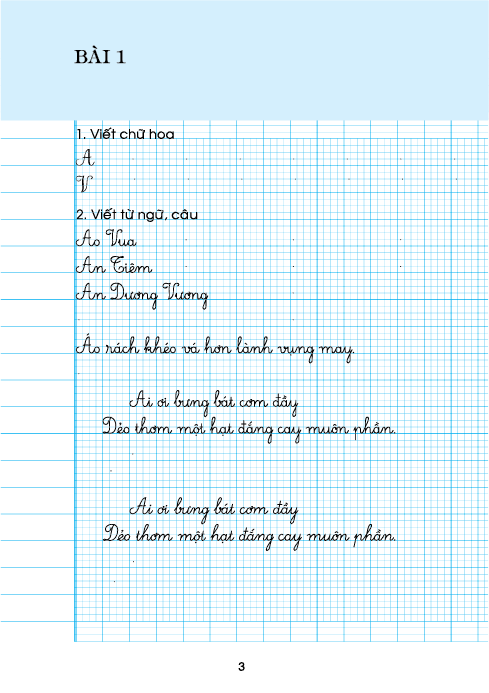 BÀI 1
1. Viết chữ hoa
A
V
2. Viết từ ngữ, câu
Ao Vua
An Tiêm
An Dương Vương
Áo rách khéo vá hơn lành vụng may.
Ai ơi bưng bát cơm đầy
Dẻo thơm một hạt đắng cay muôn phần.
Ai ơi bưng bát cơm đầy
Dẻo thơm một hạt đắng cay muôn phần.
3